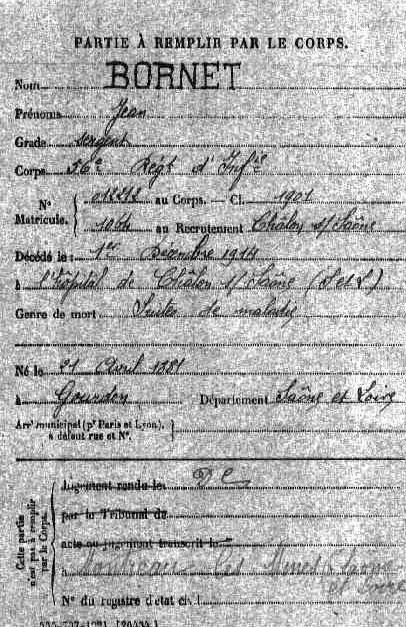 PARTIE À REMPLIR PAR LE CORPS.
Nom BORNET
Prénoms Jean
Grade sergent
Corps 56e Régt d'Infie
N° Matricule. 012212 au Corps. — Cl. 1901
1064 au Recrutement Châlon s/Saône
Décédé le 1er Décembre 1914
à l'hôpital de Châlon s/Saône (S et L)
Genre de mort Suites de maladie
Né le 21 Avril 1881
à Gourdon Département Saône et Loire
Arrt municipal (pr Paris et Lyon),
à défaut rue et N°.
Cette partie n'est pas à remplir par le Corps.
Jugement rendu le
par le Tribunal de
acte ou jugement transcrit le
à Montceau les Mines Saône
et Loire
N° du registre d'état civil